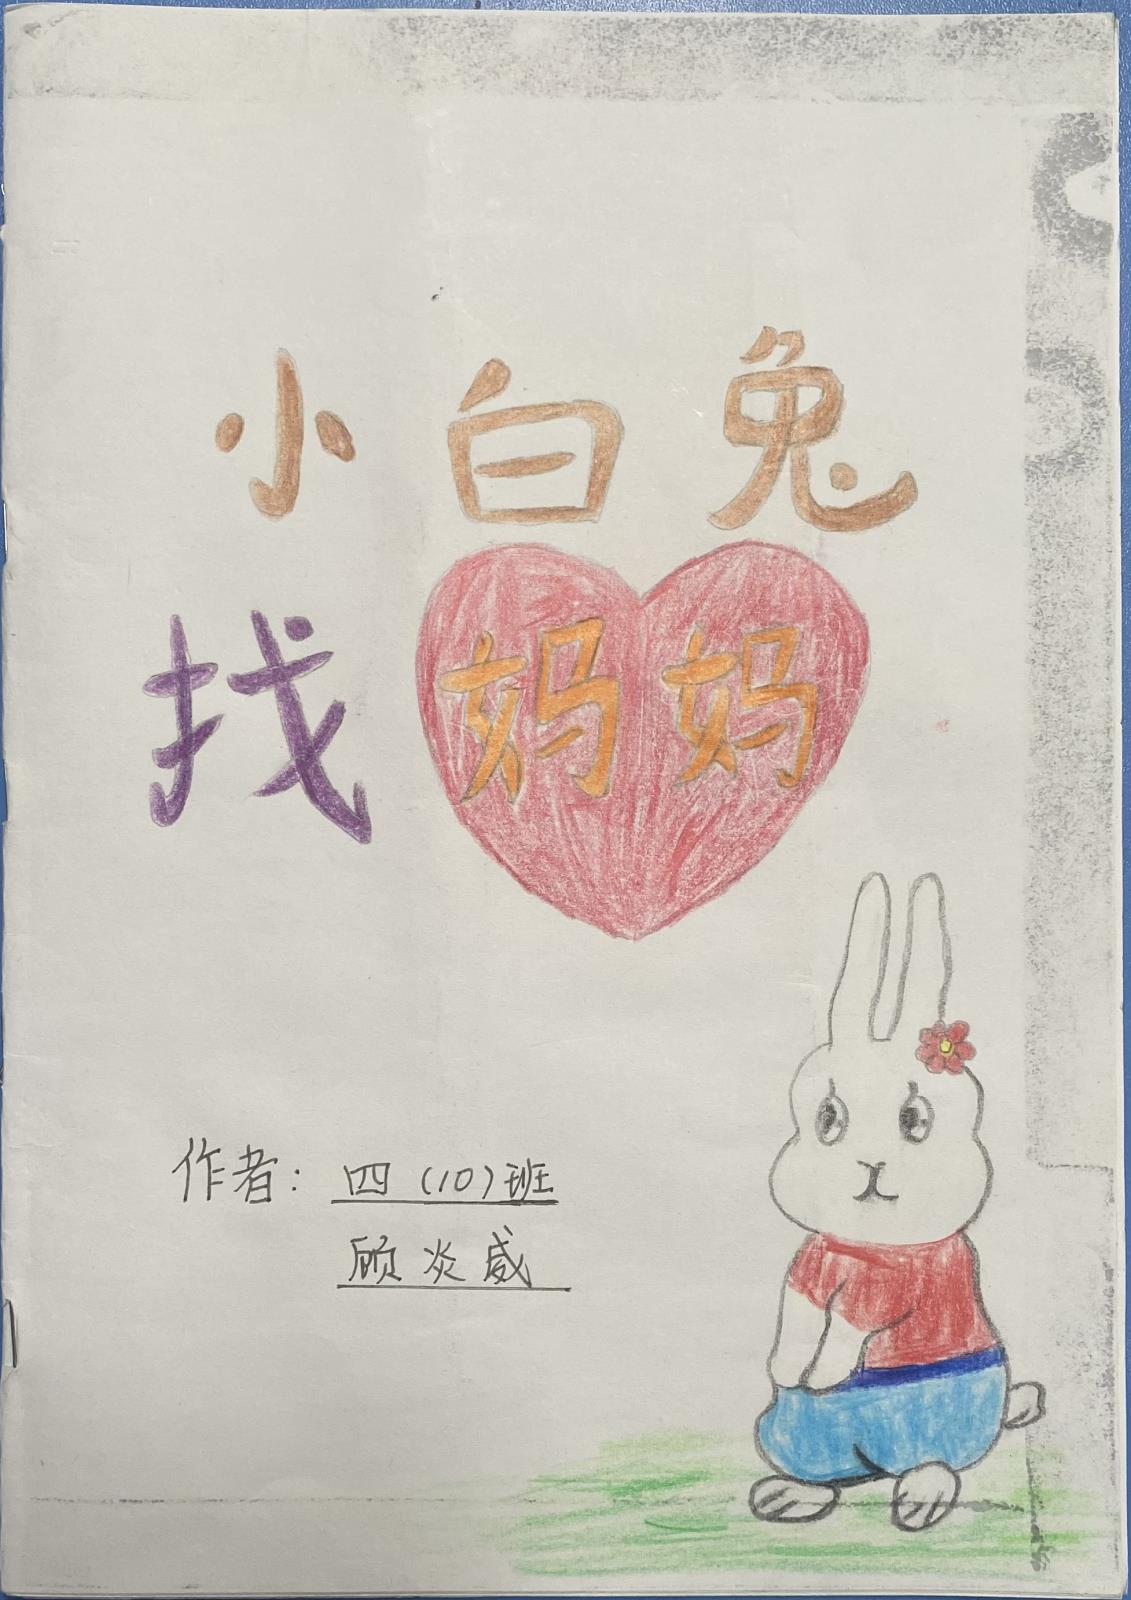 小白兔
找妈妈
作者：四（10）班
顾炎威